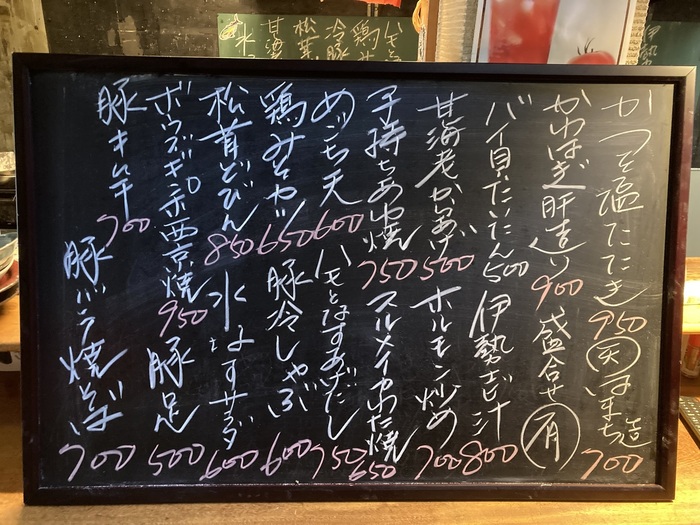 かつを塩たたき 950
天 はまち造 700
かわはぎ肝造り 900
盛合せ 有
バイ貝だいたん 500
伊勢エビ汁 800
甘海老かきあげ 500
ホルモン炒め 700
子持ちあゆ焼 750
スルメイカわた焼 650
めごち天 600
ハモとなすあげだし 750
鶏みそカツ 650
豚冷しゃぶ 600
松茸どびん 850
水なすサラダ 600
西京焼 950
豚足 500
豚キムチ 700
豚バラ焼そば 700